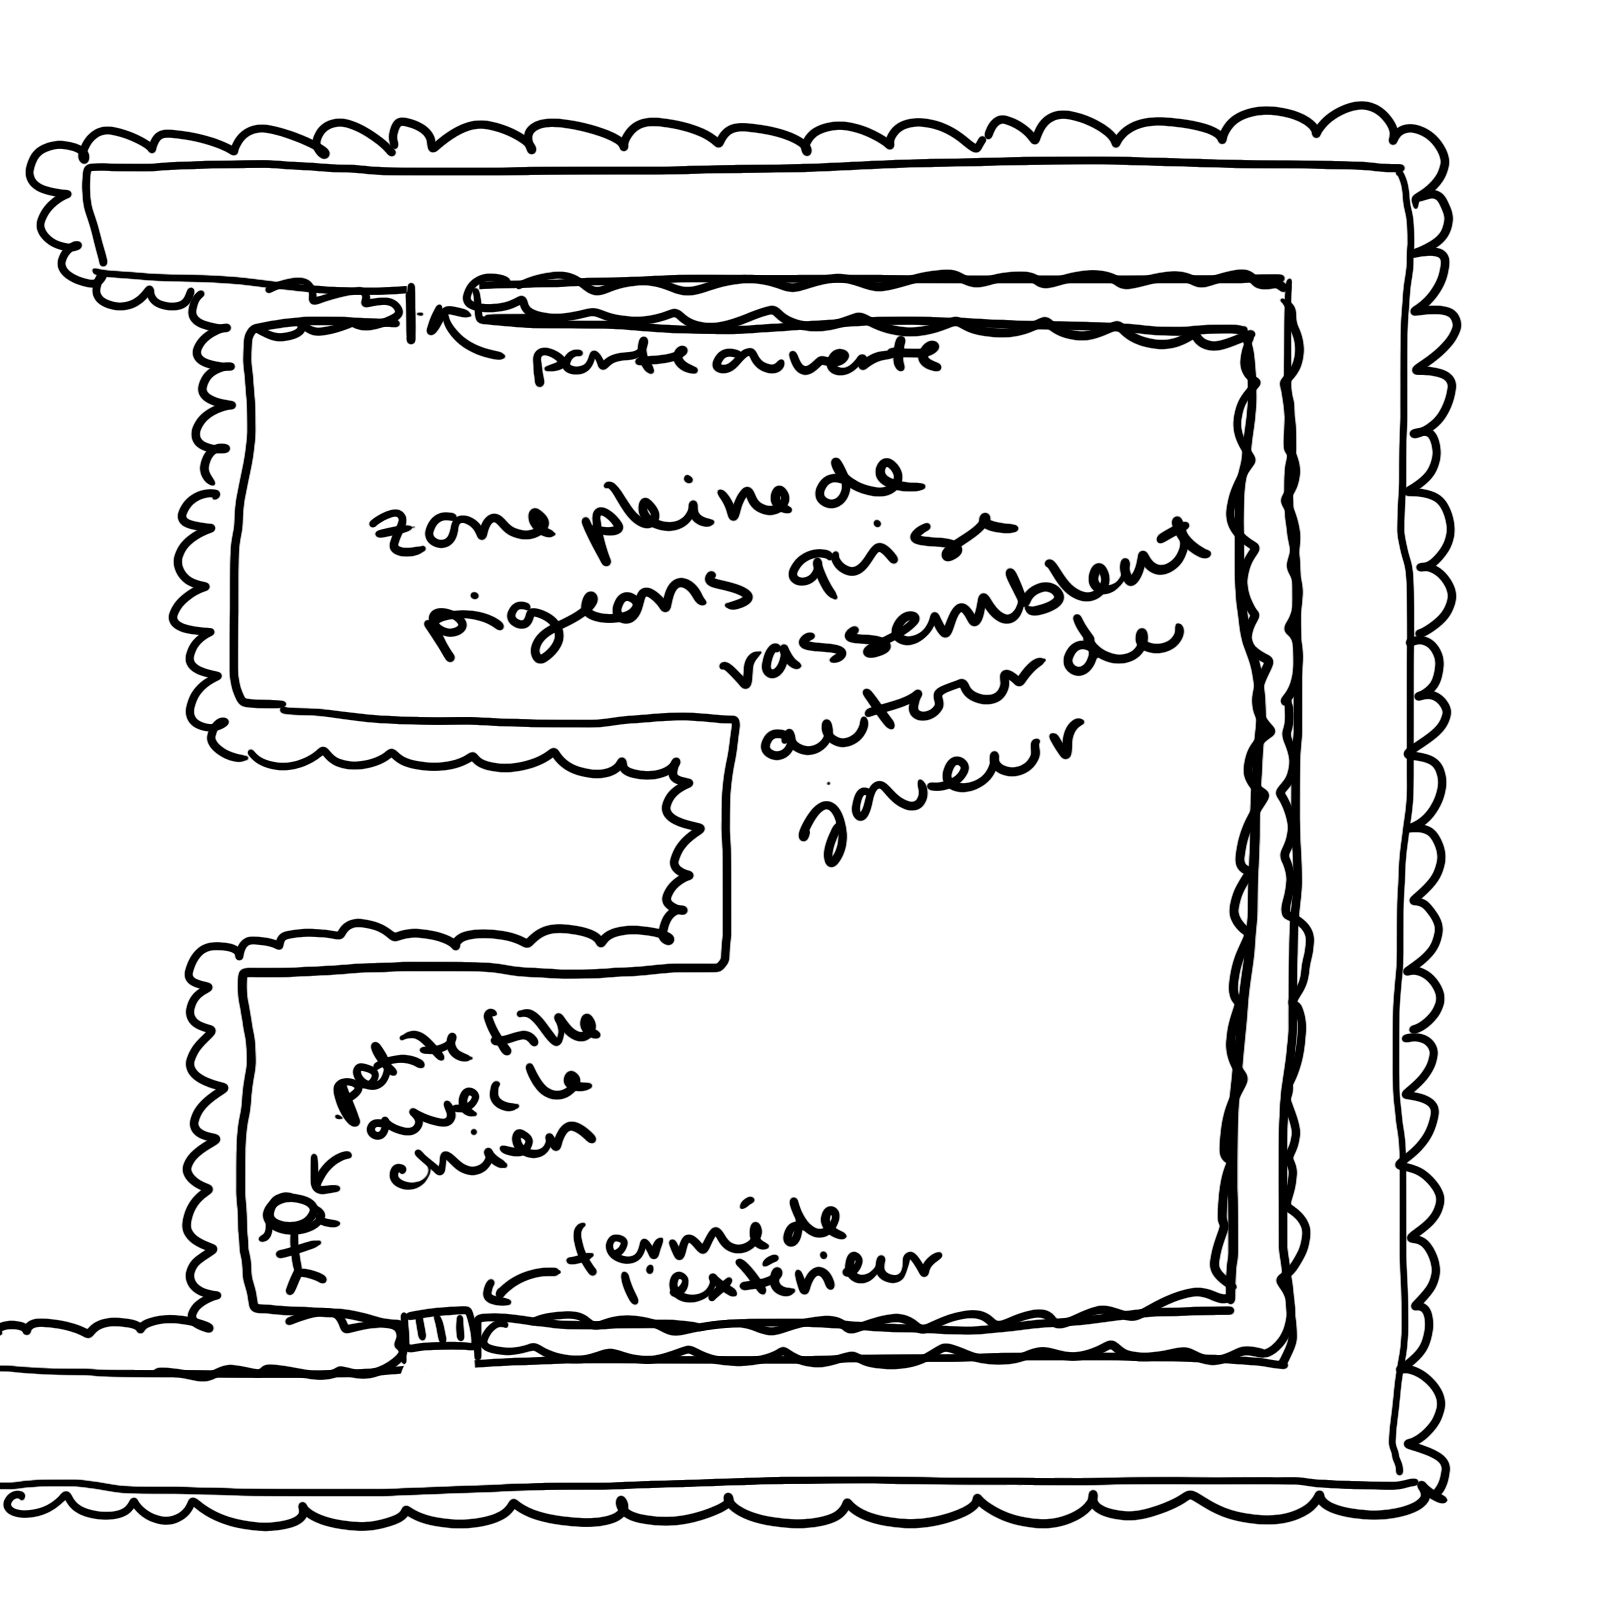 porte ouverte
zone pleine de
pigeons qui se
rassemblent
autour de
joueur
petite fille
avec le
chien
fermé de
l'extérieur